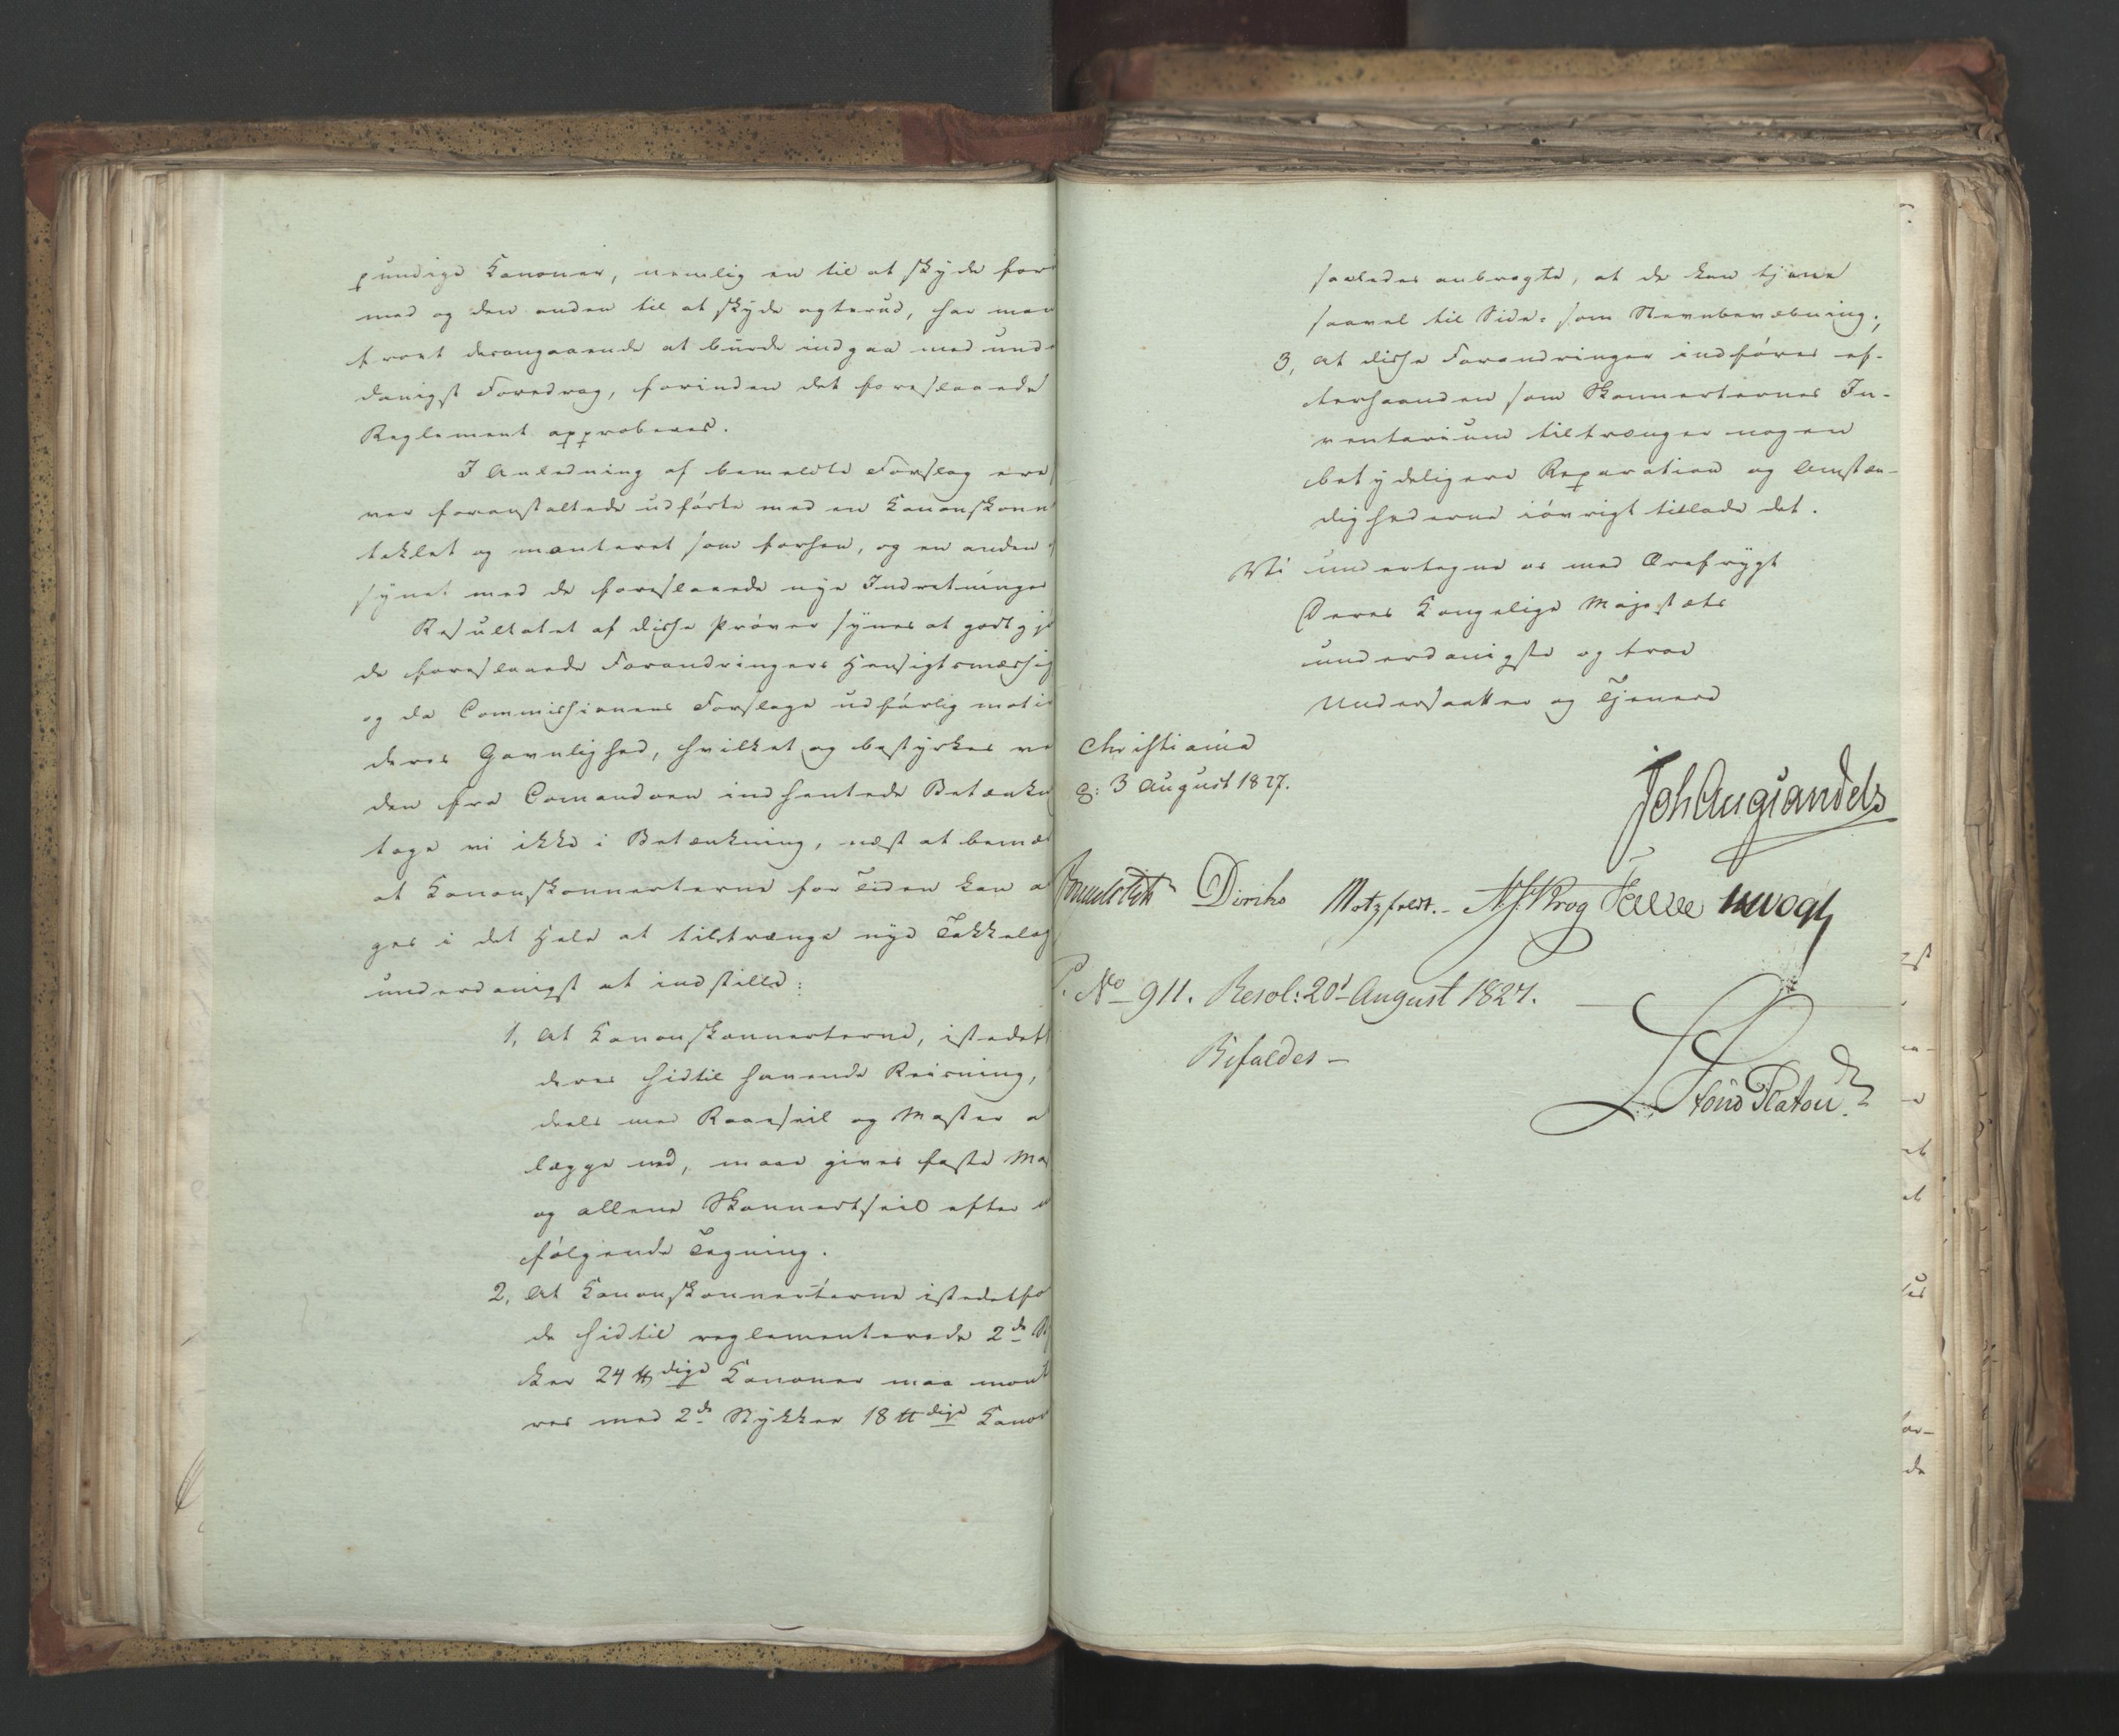 pundige Kanoner, nemlig en til at skyde for
ud og den anden til at skyde agterud, har man
troet desangaaende at burde indgaa med und
danigst Foredrag, forinden det foreslaaede
Reglement approberes.
I Anledning af bemeldte Forslag ere
ver foranstaltede udførte med en Kanonskonn
taklet og monteret som forhen, og en anden
synet med de foreslaaede nye Indretninger
Resultatet af disse Prøver synes at godtgjø
de foreslaaede Forandringers Hensigtsmæssig
og da Commissionens Forslage udførlig moti
deres Gavnlighed, hvilket og bestyrkes ve
den fra Comandoen indhentede Betænkn
tage vi ikke i Betænkning, næst at bemær
at Kanonskonnerterne for Tiden kan a
ges i det Hele at tiltrænge nye Takkelag
underdanigst at indstille:
1, At Kanonskonnerterne, istedetf
deres hidtil havende Reisning,
deels med Raaeseil og Master a
lægge ned, maae gives faste Ma
og allene Skonnertseil efter
følgende Tegning.
2, At Kanonskonnerterne istedetfo
de hidtil reglementerede 2de St
ker 24 ℔dige Kanoner maa mont
res med 2de Stykker 18 ℔dige Kanon
saaledes anbragte, at de kan tjene
saavel til Side- som Stevnbevæbning;
3, At disse Forandringer indføres ef-
terhaanden som Skonnerternes In-
ventarium tiltrænger nogen
betydeligere Reparation og Omstæn-
dighederne iøvrigt tillade det.
Vi undertegne os med Ærefrygt
Deres Kongelige Majestæts
underdanigste og troe
Undersaatter og Tjenere
Christiania
d: 3 August 1827.
Joh Aug Sandels
Diriks Motzfeldt. Krog Fasting Vogt
P. No 911. Resol: 20d August 1827.
Bifaldes —
Stoud Platou